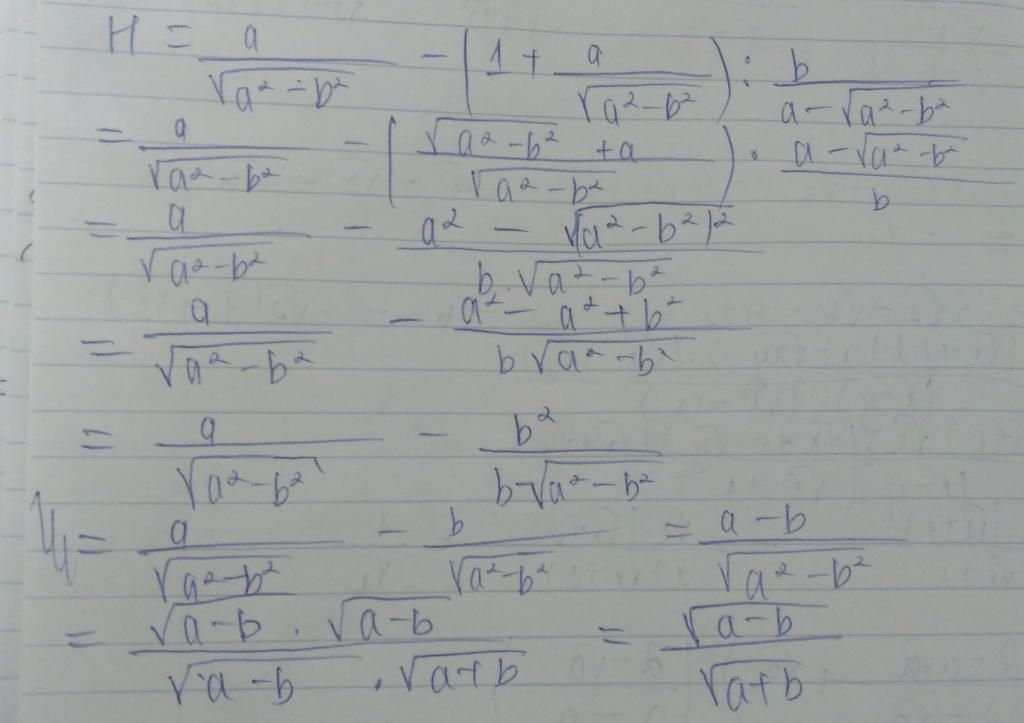 H = a/√(a² - b²) - (1 + a/√(a² - b²)) : b/(a - √(a² - b²))
= a/√(a² - b²) - ((√(a² - b²) + a)/√(a² - b²)) . (a - √(a² - b²))/b
= a/√(a² - b²) - (a² - √(a² - b²)²)/(b . √(a² - b²))
= a/√(a² - b²) - (a² - a² + b²)/(b √(a² - b²))
= a/√(a² - b²) - b²/(b √(a² - b²))
= a/√(a² - b²) - b/√(a² - b²) = (a - b)/√(a² - b²)
= (√(a - b) . √(a - b))/(√(a - b) . √(a + b)) = √(a - b)/√(a + b)